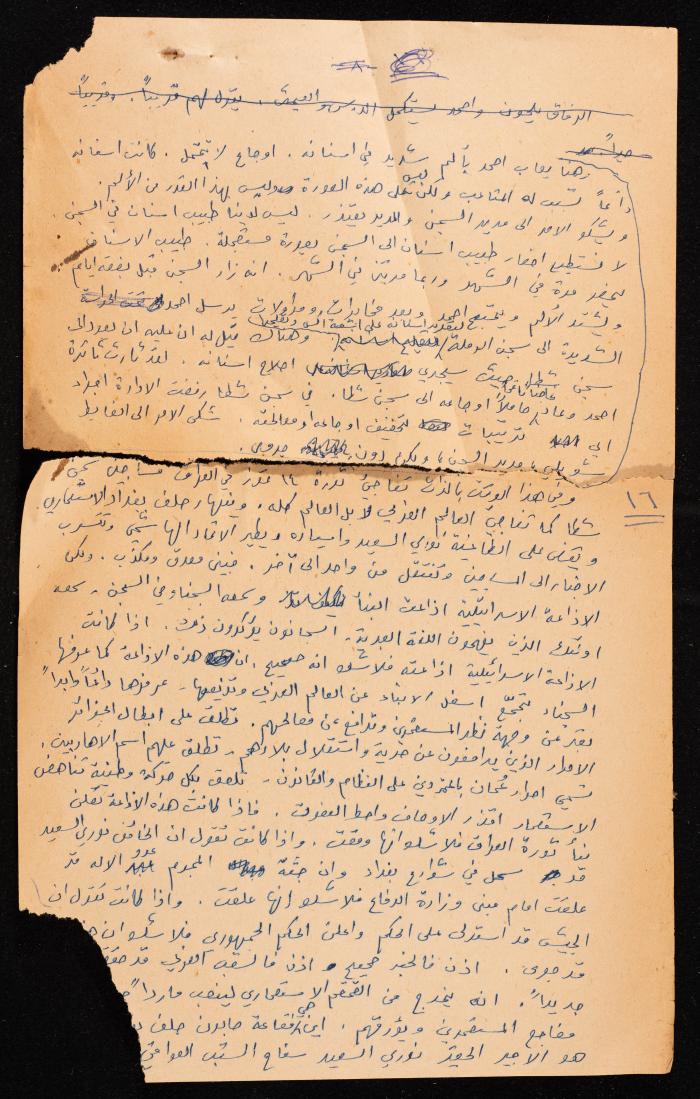 - ٨ -
الرفاق يلحون واحمد يستكمل الدرس و . يقول لهم قريباً . قريباً
جداً .
وهنا يصاب احمد بألم شديد في اسنانه . اوجاع لا تحتمل . كانت اسنانه
دائماً تسبب له المتاعب ولكن ليس بمثل هذه الصورة وليس بهذا القدر من الألم .
ويشكو الامر الى مدير السجن والمدير يعتذر . ليس لدينا طبيب اسنان في السجن .
لا نستطيع احضار طبيب اسنان الى السجن بصورة مستعجلة . طبيب الاسنان
يحضر مرة في الشهر وربما مرتين في الشهر . انه زار السجن قبل بضعة ايام
ويشتد الألم ويحتج احمد وبعد مخابرات ومداولات يرسل احمد تحت الحراسة
الشديدة الى سجن الرملة لتصوير اسنانه على اشعة اكس وهناك قيل له ان عليه ان يعود الى
سجن شطا حيث سيجري اصلاح اسنانه . لقد ثارت ثائرة
احمد وعاد غاضباً حاملاً اوجاعه الى سجن شطا . في سجن شطا رفضت الادارة اجراء
اي ترتيبات لتخفيف اوجاعه او معالجته . شكى الامر الى الضابط
مدير السجن ، ولكن دون جدوى .
١٦
وفي هذا الوقت بالذات تفاجئ ثورة ١٤ تموز في العراق مساجين سجن
شطا كما تفاجئ العالم العربي لا بل العالم كله . وينهار حلف بغداد الاستعماري
ويقضى على الطاغية نوري السعيد واسياده ويطير الاتحاد الهاشمي وتتسرب
الاخبار الى المساجين وتنتقل من واحد الى آخر . فبين مصدق ومكذب . ولكن
الاذاعة الاسرائيلية اذاعت النبأ وسمعه السجناء في السجن . سمعه
اولئك الذين يفهمون اللغة العربية . السجانون يؤكدون ذلك . اذا كانت
الاذاعة الاسرائيلية اذاعته فلا شك انه صحيح . ان هذه الاذاعة كما عرفها
السجناء تتجمع اسفل الانباء عن العالم العربي وتذيعها . عرفوها دائماً وابداً
تعبر عن وجهة نظر المستعمرين وتدافع عن مصالحهم . تطلق على ابطال الجزائر
الاحرار الذين يدافعون عن حرية واستقلال بلادهم - تطلق عليهم اسم الارهابيين .
تسمي احرار عُمان بالمتمردين على النظام والقانون - تلصق بكل حركة وطنية تناهض
الاستعمار اقذر الاوصاف واحط الصفات . فاذا كانت هذه الاذاعة تعلن
نبأ ثورة العراق فلا شك انها وقعت . واذا كانت تقول ان الخائن نوري السعيد
قد سحل في شوارع بغداد وان جثة المجرم عبد الاله قد
علقت امام مبنى وزارة الدفاع فلا شك انها علقت . واذا كانت تقول ان
الجيش قد استولى على الحكم واعلن الحكم الجمهوري فلا شك ان
قد جرى . اذن فالخبر صحيح . اذن فالشعب العربي قد
جديداً . انه يخرج من القمقم الاستعماري لينصب مارداً
مضاجع المستعمرين ويؤرقهم . اين هي فقاعة صابون حلف
هو الاجير الحقير نوري السعيد سفاح الشعب العراقي